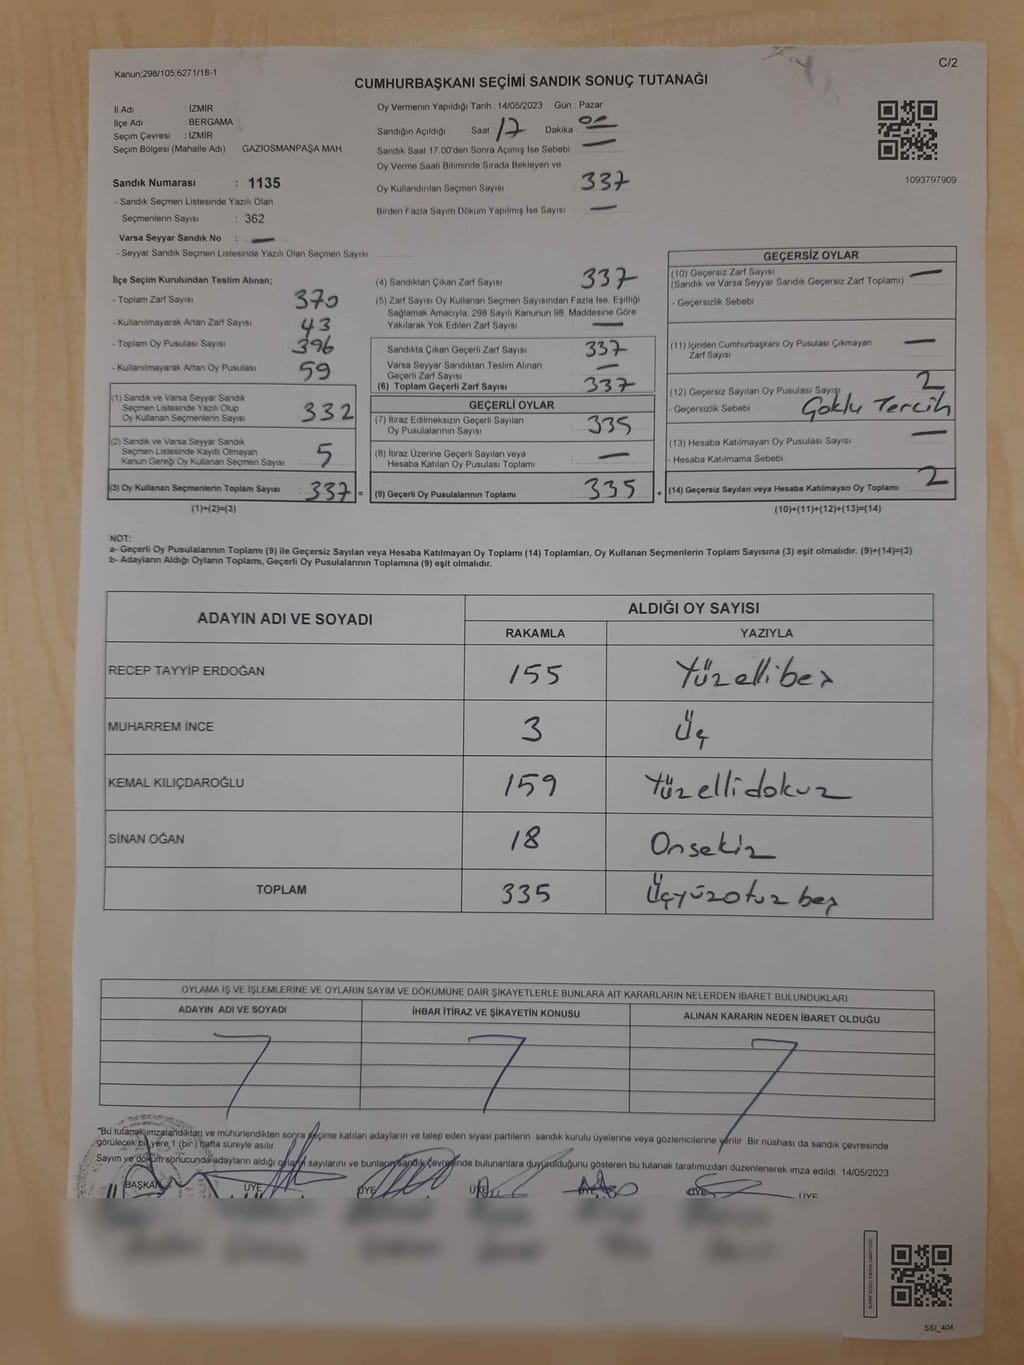 Kanun;298/105,6271/18-1
C/2
CUMHURBAŞKANI SEÇİMİ SANDIK SONUÇ TUTANAĞI
İl Adı : İZMİR
İlçe Adı : BERGAMA
Seçim Çevresi : İZMİR
Seçim Bölgesi (Mahalle Adı) GAZİOSMANPAŞA MAH.
Sandık Numarası : 1135
- Sandık Seçmen Listesinde Yazılı Olan
Seçmenlerin Sayısı : 362
Varsa Seyyar Sandık No : —
- Seyyar Sandık Seçmen Listesinde Yazılı Olan Seçmen Sayısı
Oy Vermenin Yapıldığı Tarih : 14/05/2023 Gün : Pazar
Sandığın Açıldığı Saat 17 Dakika 00
Sandık Saat 17.00'den Sonra Açımış İse Sebebi —
Oy Verme Saati Bitiminde Sırada Bekleyen ve
Oy Kullandırılan Seçmen Sayısı 337
Birden Fazla Sayım Döküm Yapılmış İse Sayısı —
1093797909
İlçe Seçim Kurulundan Teslim Alınan;
- Toplam Zarf Sayısı 370
- Kullanılmayarak Artan Zarf Sayısı 43
- Toplam Oy Pusulası Sayısı 396
- Kullanılmayarak Artan Oy Pusulası 59
(1) Sandık ve Varsa Seyyar Sandık
Seçmen Listesinde Yazılı Olup
Oy Kullanan Seçmenlerin Sayısı 332
(2) Sandık ve Varsa Seyyar Sandık
Seçmen Listesinde Kayıtlı Olmayan
Kanun Gereği Oy Kullanan Seçmen Sayısı 5
(3) Oy Kullanan Seçmenlerin Toplam Sayısı 337 =
(1)+(2)=(3)
(4) Sandıktan Çıkan Zarf Sayısı 337
(5) Zarf Sayısı Oy Kullanan Seçmen Sayısından Fazla İse, Eşitliği
Sağlamak Amacıyla, 298 Sayılı Kanunun 98. Maddesine Göre
Yakılarak Yok Edilen Zarf Sayısı —
Sandıkta Çıkan Geçerli Zarf Sayısı 337
Varsa Seyyar Sandıktan Teslim Alınan
Geçerli Zarf Sayısı —
(6) Toplam Geçerli Zarf Sayısı 337
GEÇERLİ OYLAR
(7) İtiraz Edilmeksizin Geçerli Sayılan
Oy Pusulalarının Sayısı 335
(8) İtiraz Üzerine Geçerli Sayılan veya
Hesaba Katılan Oy Pusulası Toplamı —
(9) Geçerli Oy Pusulalarının Toplamı 335 +
GEÇERSİZ OYLAR
(10) Geçersiz Zarf Sayısı
(Sandık ve Varsa Seyyar Sandık Geçersiz Zarf Toplamı) —
- Geçersizlik Sebebi
(11) İçinden Cumhurbaşkanı Oy Pusulası Çıkmayan
Zarf Sayısı —
(12) Geçersiz Sayılan Oy Pusulası Sayısı 2
- Geçersizlik Sebebi Çoklu Tercih
(13) Hesaba Katılmayan Oy Pusulası Sayısı —
- Hesaba Katılmama Sebebi
(14) Geçersiz Sayılan veya Hesaba Katılmayan Oy Toplamı 2
(10)+(11)+(12)+(13)=(14)
NOT:
a- Geçerli Oy Pusulalarının Toplamı (9) ile Geçersiz Sayılan veya Hesaba Katılmayan Oy Toplamı (14) Toplamları, Oy Kullanan Seçmenlerin Toplam Sayısına (3) eşit olmalıdır. (9)+(14)=(3)
b- Adayların Aldığı Oyların Toplamı, Geçerli Oy Pusulalarının Toplamına (9) eşit olmalıdır.
ADAYIN ADI VE SOYADI ALDIĞI OY SAYISI
RAKAMLA YAZIYLA
RECEP TAYYİP ERDOĞAN 155 Yüzellibeş
MUHARREM İNCE 3 Üç
KEMAL KILIÇDAROĞLU 159 Yüzellidokuz
SİNAN OĞAN 18 Onsekiz
TOPLAM 335 Üçyüzotuz beş
OYLAMA İŞ VE İŞLEMLERİNE VE OYLARIN SAYIM VE DÖKÜMÜNE DAİR ŞİKAYETLERLE BUNLARA AİT KARARLARIN NELERDEN İBARET BULUNDUKLARI
ADAYIN ADI VE SOYADI İHBAR İTİRAZ VE ŞİKAYETİN KONUSU ALINAN KARARIN NEDEN İBARET OLDUĞU
"Bu tutanak imzalandıktan ve mühürlendikten sonra seçime katılan adayların ve talep eden siyasi partilerin sandık kurulu üyelerine veya gözlemcilerine verilir. Bir nüshası da sandık çevresinde
görülecek bir yere 1 (bir) hafta süreyle asılır.
Sayım ve döküm sonucunda adayların aldığı oyların sayılarını ve bunların sandık çevresinde bulunanlara duyurulduğunu gösteren bu tutanak tarafımızdan düzenlenerek imza edildi. 14/05/2023
BAŞKAN ÜYE ÜYE ÜYE ÜYE ÜYE ÜYE
SSI_404